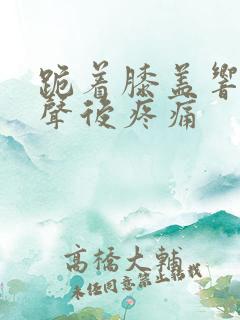 跪着膝盖響
聲後疼痛
高橋大輔
未经同意禁止轉載